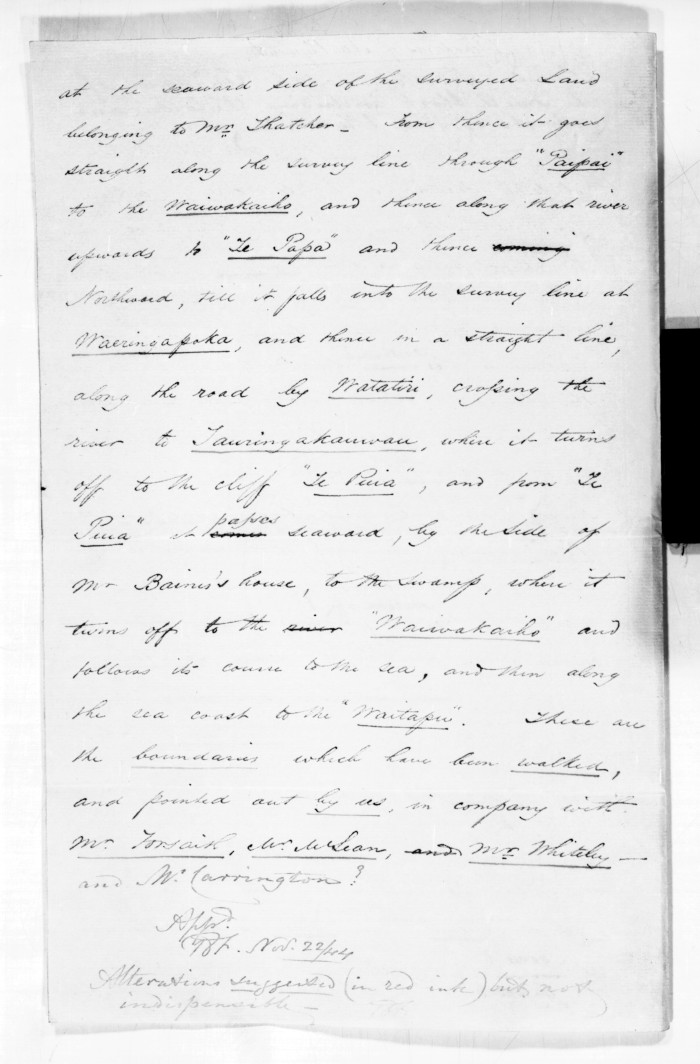 at the seaward side of the surveyed Land
belonging to Mr. Thatcher – From thence it goes
straight along the survey line through "Paipai"
to the Waiwakaiho, and thence along that river
upwards to "Te Papa" and thence coming
Northward, till it falls into the survey line at
Waeringapoka, and thence in a straight line,
along the road by Watatiri, crossing the
river to Tauringakauwau, where it turns
off to the cliff "Te Puia", and from "Te
Puia" it comes passes seaward, by the side of
Mr Baines's house, to the swamp, where it
turns off to the river "Waiwakaiho" and
follows its course to the sea, and then along
the sea coast to the "Waitapu". These are
the boundaries which have been walked,
and pointed out by us, in company with
Mr. Forsaith, Mr. McLean, and Mr. Whiteley –
and Mr. Carrington?
Appd.
Nov. 22/44
Alterations suggested (in red ink) but not
indispensible –